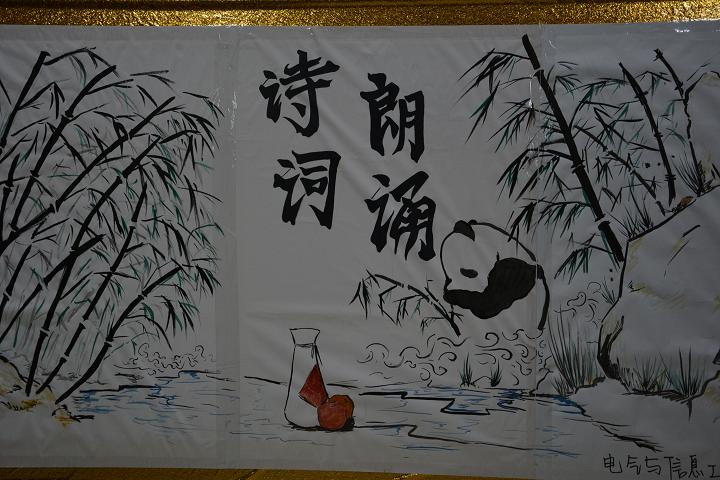 诗词
朗诵
电气与信息工